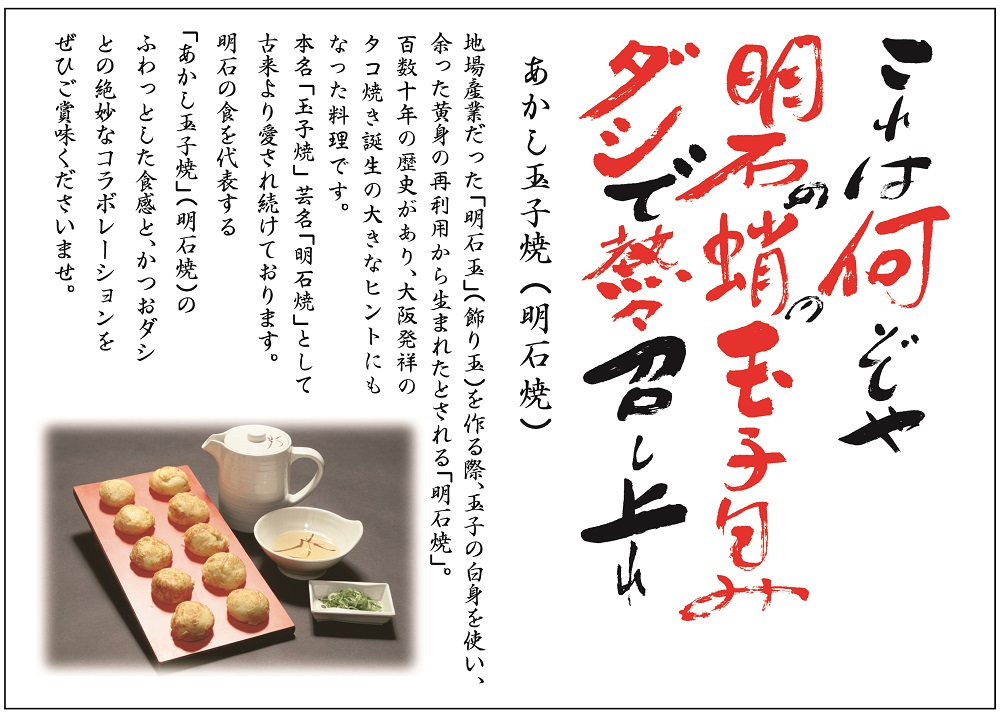 これは何ぞや
明石の蛸の玉子包み
ダシで熱々召し上れ
あかし玉子焼(明石焼)
地場産業だった「明石玉」(飾り玉)を作る際、玉子の白身を使い、
余った黄身の再利用から生まれたとされる「明石焼」。
百数十年の歴史があり、大阪発祥の
タコ焼き誕生の大きなヒントにも
なった料理です。
本名「玉子焼」芸名「明石焼」として
古来より愛され続けております。
明石の食を代表する
「あかし玉子焼」(明石焼)の
ふわっとした食感と、かつおダシ
との絶妙なコラボレーションを
ぜひご賞味くださいませ。